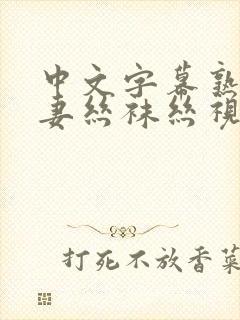 中文字幕熟
妻丝袜丝视
打死不放香菜